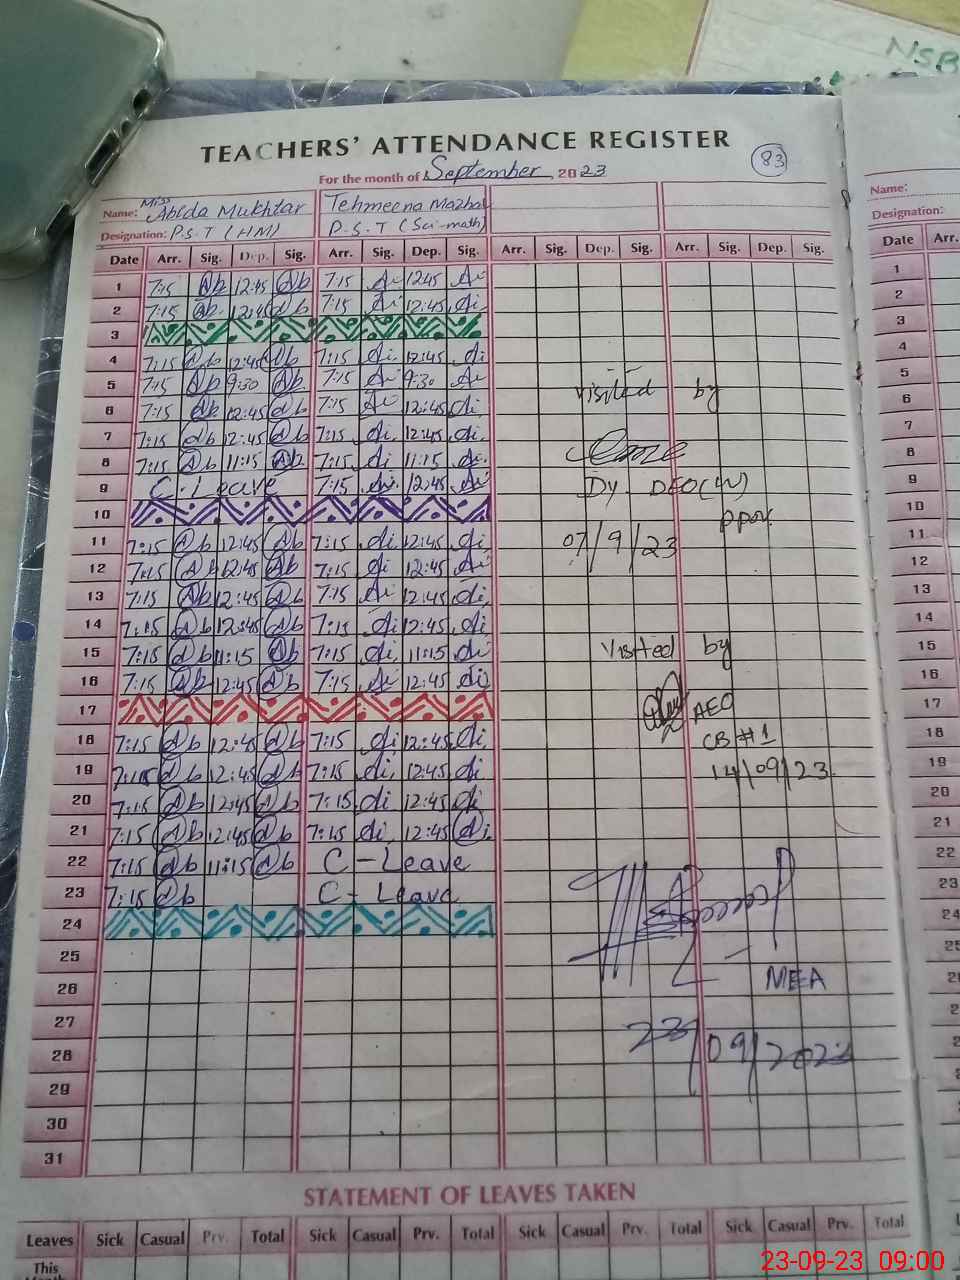 NSB
TEACHERS' ATTENDANCE REGISTER
83
For the month of September 2023
Name: Miss Abida Mukhtar Tehmeena Mazhar
Designation: P.S.T (HM) P.S.T (Sci-math)
Date Arr. Sig. Dep. Sig. Arr. Sig. Dep. Sig. Arr. Sig. Dep. Sig. Arr. Sig. Dep. Sig.
1 7:15 Ab 12:45 Ab 7:15 Ai 12:45 Ai
2 7:15 Ab 12:45 Ab 7:15 Ai 12:45 Ai
3
4 7:15 Ab 12:45 Ab 7:15 Ai 12:45 Ai
5 7:15 Ab 9:30 Ab 7:15 Ai 9:30 Ai
6 7:15 Ab 12:45 Ab 7:15 Ai 12:45 Ai
7 7:15 Ab 12:45 Ab 7:15 Ai 12:45 Ai
8 7:15 Ab 11:15 Ab 7:15 Ai 11:15 Ai
9 C-Leave 7:15 Ai 12:45 Ai
10
11 7:15 Ab 12:45 Ab 7:15 Ai 12:45 Ai
12 7:15 Ab 12:45 Ab 7:15 Ai 12:45 Ai
13 7:15 Ab 12:45 Ab 7:15 Ai 12:45 Ai
14 7:15 Ab 12:45 Ab 7:15 Ai 12:45 Ai
15 7:15 Ab 11:15 Ab 7:15 Ai 11:15 Ai
16 7:15 Ab 12:45 Ab 7:15 Ai 12:45 Ai
17
18 7:15 Ab 12:45 Ab 7:15 Ai 12:45 Ai
19 7:15 Ab 12:45 Ab 7:15 Ai 12:45 Ai
20 7:15 Ab 12:45 Ab 7:15 Ai 12:45 Ai
21 7:15 Ab 12:45 Ab 7:15 Ai 12:45 Ai
22 7:15 Ab 11:15 Ab C-Leave
23 7:15 Ab C-Leave
24
25
26
27
28
29
30
31
visited by
Dy DEO(W)
07/9/23
Visited by
AEO
CB #1
14/09/23
MEA
23/09/2023
STATEMENT OF LEAVES TAKEN
Leaves Sick Casual Prv. Total Sick Casual Prv. Total Sick Casual Prv. Total Sick Casual Prv. Total
This
Name:
Designation:
Date Arr.
1
2
3
4
5
6
7
8
9
10
11
12
13
14
15
16
17
18
19
20
21
22
23
24
23-09-23 09:00